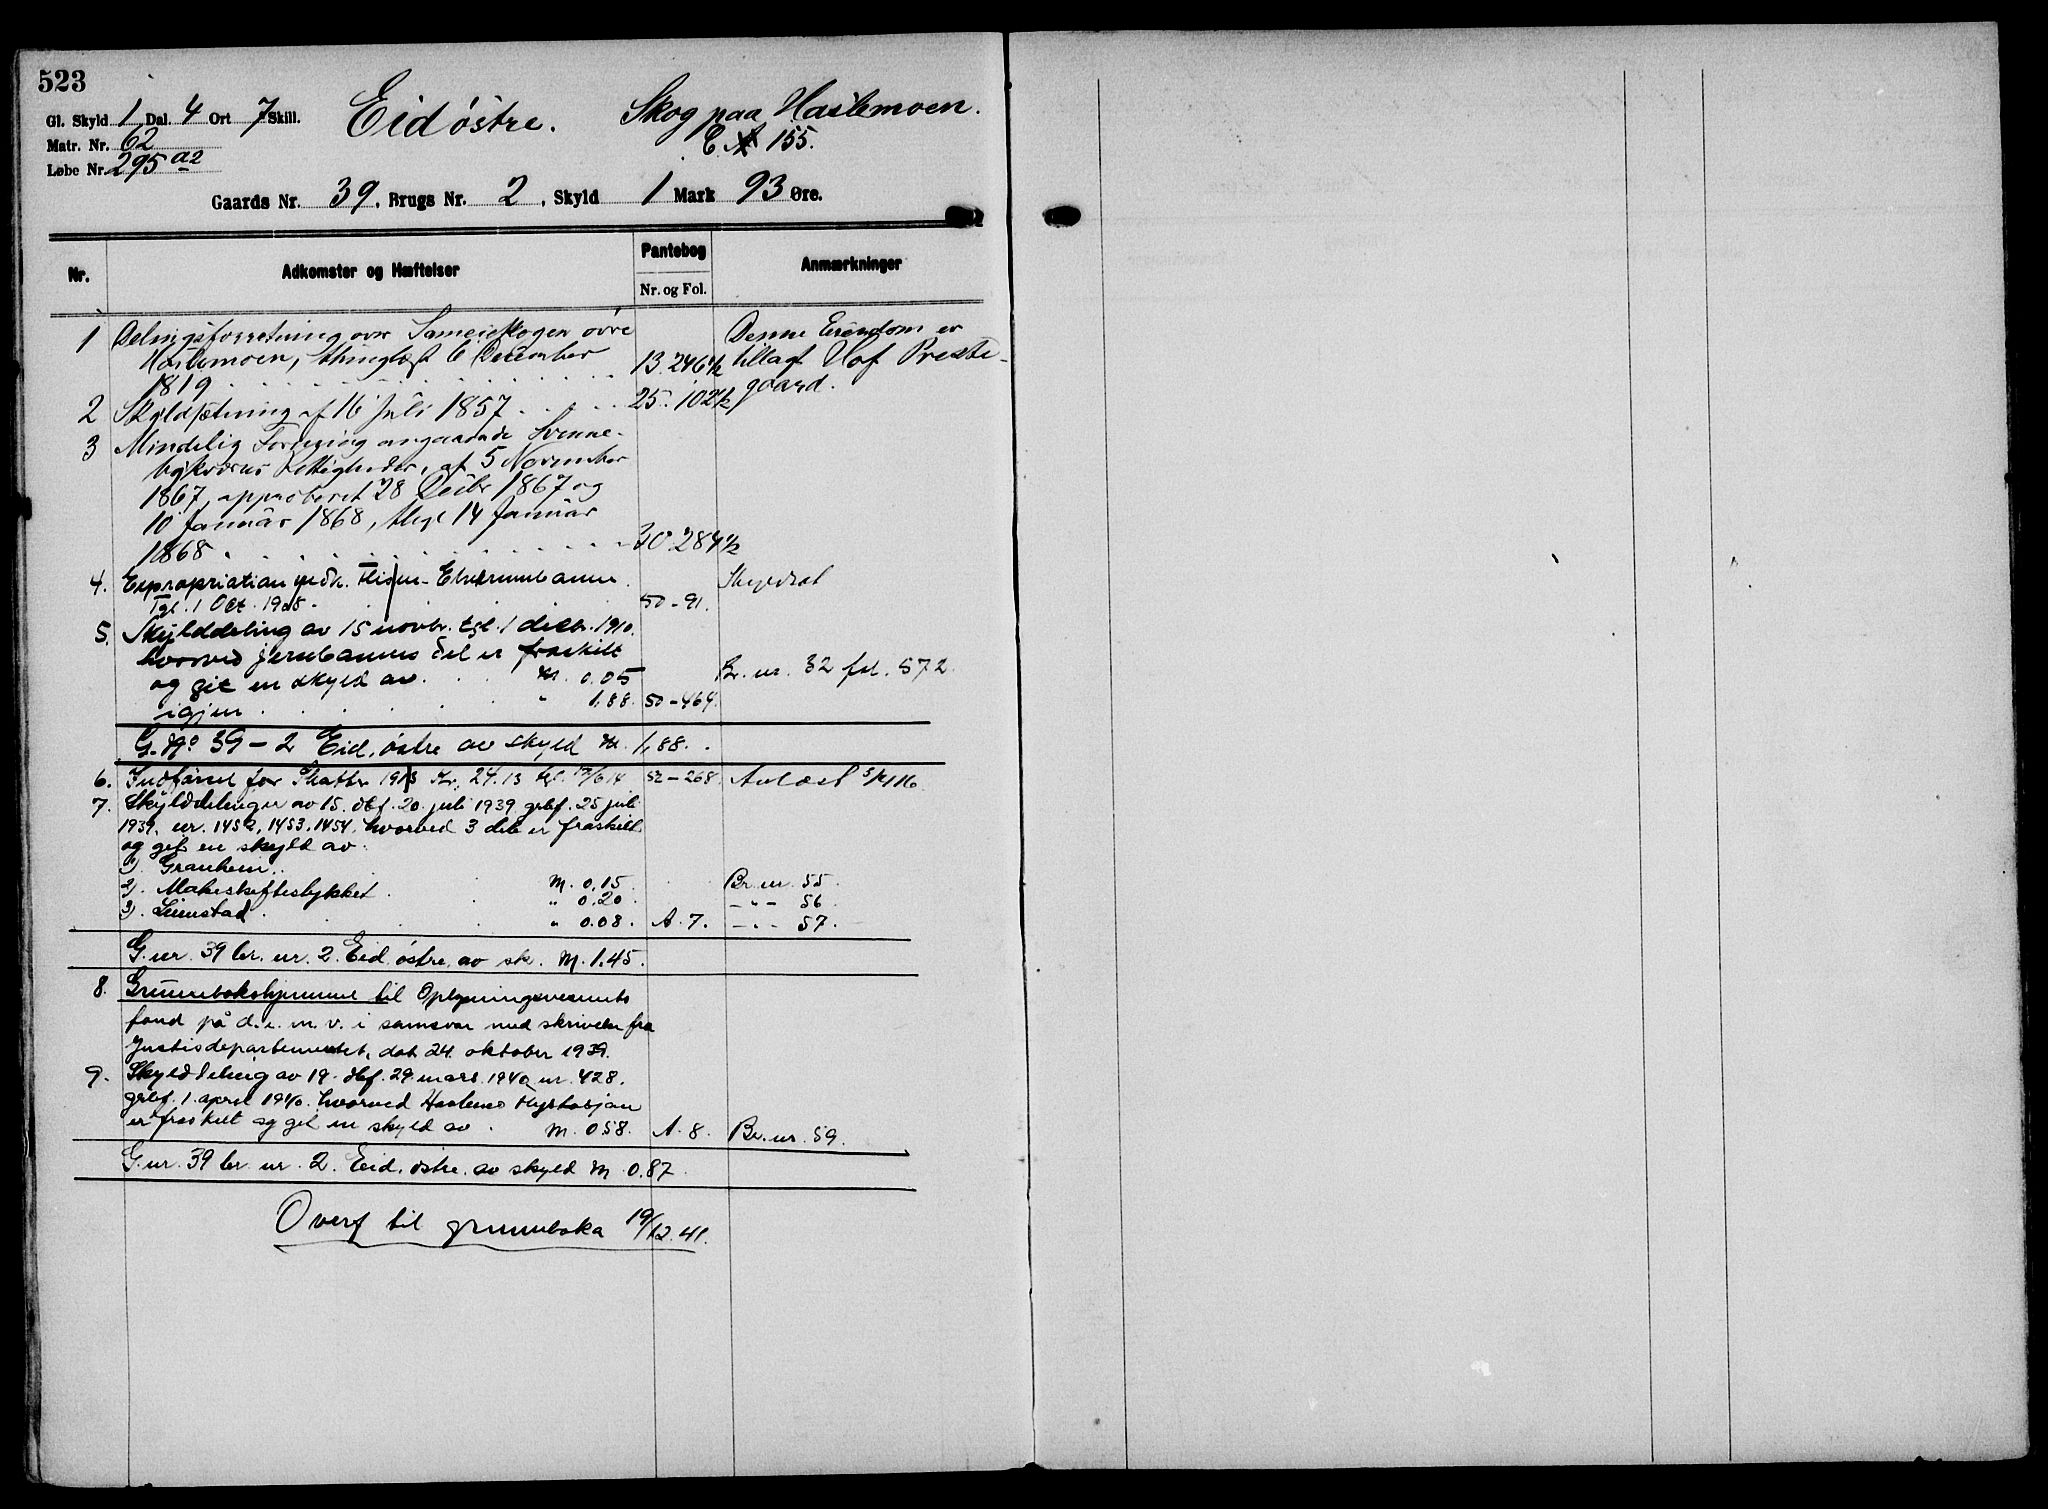 523
Gl. Skyld 1 Dal. 4 Ort 7 Skill. Eid östre. Skog paa Haslemoen.
Matr. Nr. 62 155.
Løbe Nr. 295 a2
Gaards Nr. 39, Brugs Nr. 2, Skyld 1 Mark 93 Øre.
Nr. Adkomster og Hæftelser Pantebog Nr. og Fol. Anmærkninger
1 Delingsforretning over Sameieskogen övre Denne Eiendom er
Haslemoen, thinglæst 6 December 13.246½ tillagt Hof Præste-
1819 gaard.
2 Skyldsætning af 16 Juli 1857 25.102½
3 Mindelig Foreening angaaende Svenne-
bykvernes Rettigheder, af 5 November
1867, approberet 28 Decbr 1867 og
10 Januar 1868, thgl 14 Januar
1868 30 284½
4. Expropriation vedk. Flisen-Elverumbanen
Tgl. 1 Oct. 1905. 50-91.
5. Skylddeling av 15 novbr. tgl. 1 decbr. 1910.
hvorved jernbanens del er fraskilt
og git en skyld av M. 0.05 Br. nr. 32 fol. 572.
igjen " 1.88. 50-464.
G. No 39-2 Eid, östre av skyld M. 1.88.
6. Indförsel for Skatter 1913 Kr. 24.13 tgl. 52-268. Avlæst
7. Skylddelinger av 15. dbf. 20. juli 1939 grbf. 25 juli
1939, nr. 1452, 1453, 1454, hvorved 3 dele er fraskilt
og git en skyld av:
1). Granheim M. 0.15. Br. nr. 55.
2). Makeskiftestykket " 0.20. -"- 56.
3). Leinstad " 0.08. A. 7. -"- 57.
G. nr. 39 br. nr. 2. Eid östre. av sk. M. 1.45.
8. Grunnbokshjemmel til Oplysningsvesenets
fond på d. e. m. v. i samsvar med skrivelse fra
Justisdepartementet, dat 24. oktober 1939.
9. Skylddeling av 19. dbf. 29. mars. 1940 nr. 428.
grbf. 1. april 1940. hvorved Haslemo
er fraskilt og git en skyld av M. 0.58. A. 8. Br. nr. 59.
G. nr. 39 br. nr. 2. Eid. östre. av skyld M. 0.87.
Overf til grunnboka 19/12.41.